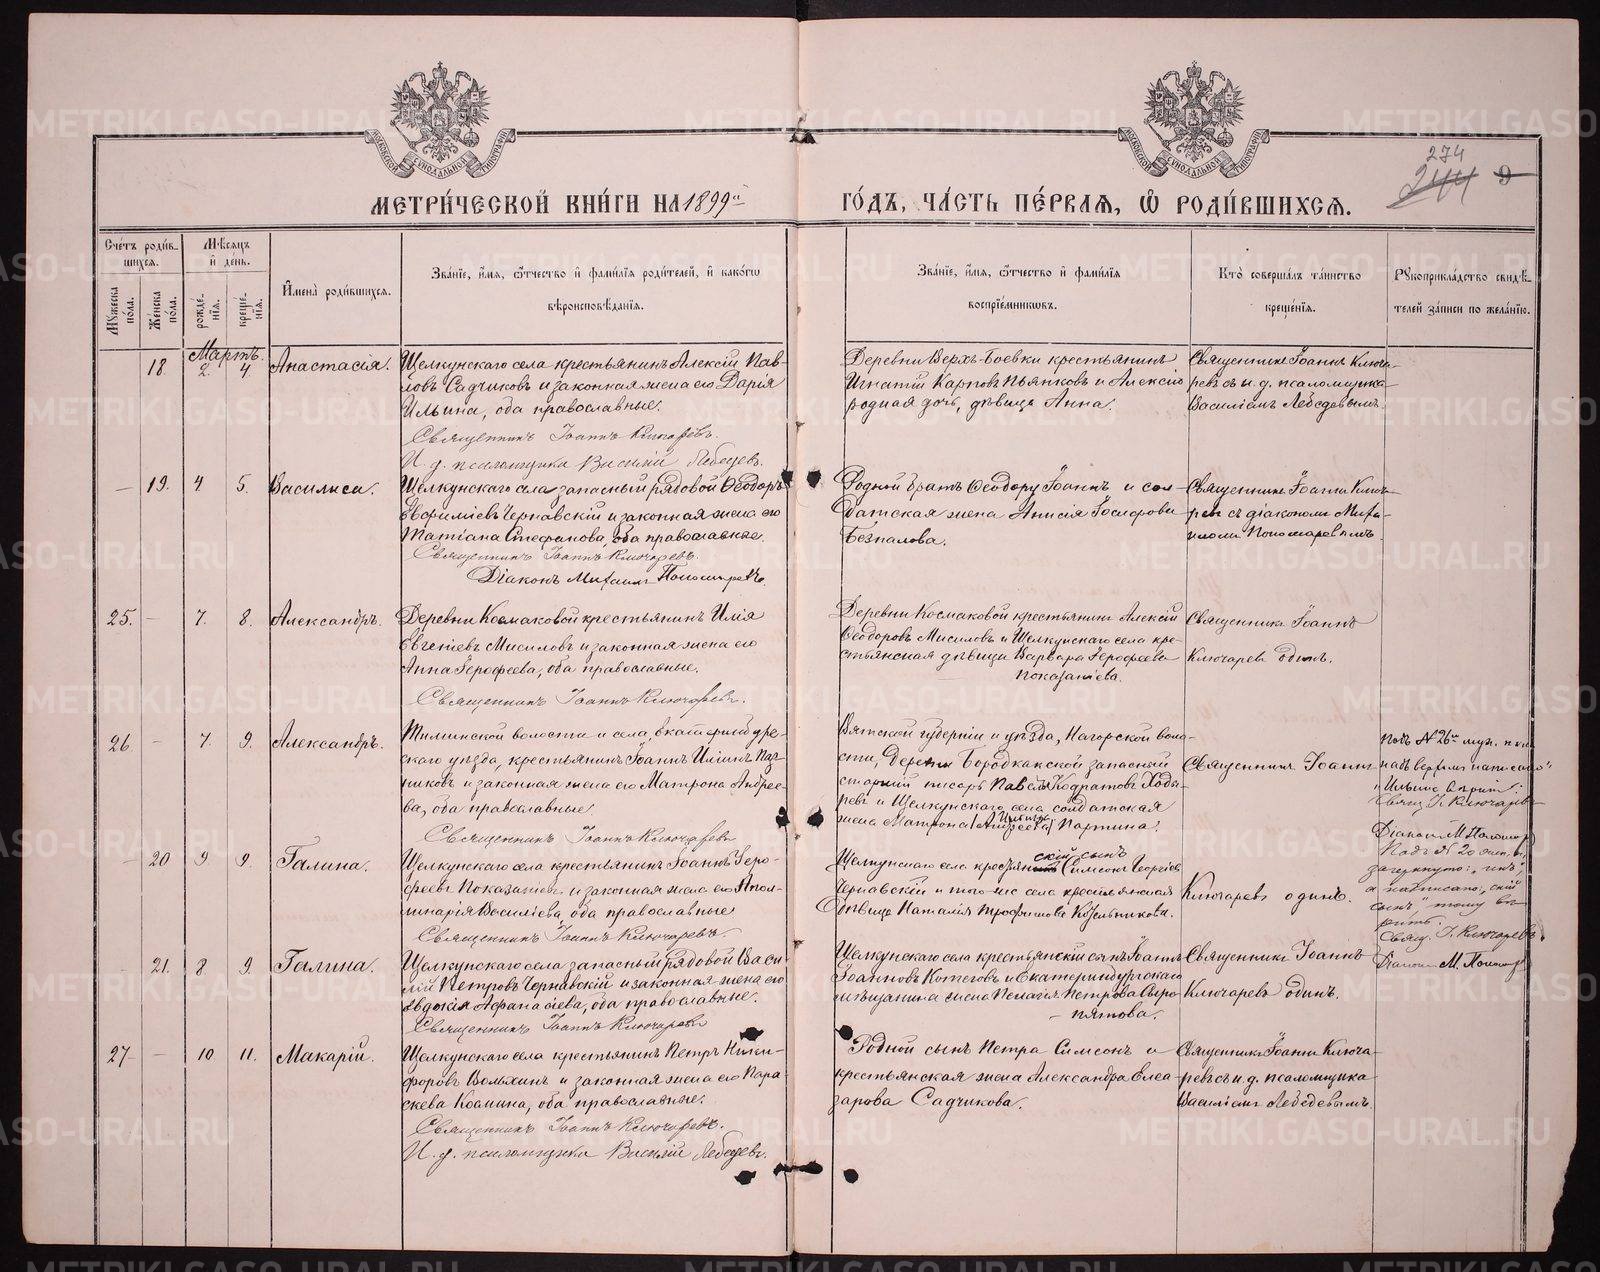 МЕТРИ́ЧЕСКОЙ КНИ́ГИ НА 1899й
ГО́ДЪ, ЧА́СТЬ ПЕ́РВАЯ, Ѡ РОДИ́ВШИХСЯ.
274
244 9
Сче́тъ роди́в-
шихся.
Мѣсяцъ
и день.
Му́жеска
по́ла.
Же́нска
по́ла.
рожде́-
нїя.
креще́-
нїя.
Имена̀ роди́вшихся.
Зва́нїе, и́мя, ѻ́тчество и фами́лїя роди́телей, и како́гѡ
вѣроисповѣ́данїя.
Зва́нїе, и́мя, ѻ́тчество и фами́лїя
воспрїе́мникѡвъ.
Кто̀ соверша́лъ та́инство
креще́нїя.
Рукоприкла́дство свидѣ́-
телей за́писи по жела́нїю.
Мартъ.
18. 2. 4 Анастасія.
Щелкунскаго села крестьянинъ Алексій Пав-
ловъ Садчиковъ и законная жена его Дарія
Ильина, оба православные.
Священникъ Іоаннъ Ключаревъ.
И. д. псаломщика Василій Лебедевъ.
Деревни Верхъ-Боевки крестьянинъ
Игнатій Карповъ Пьянковъ и Алексія
родная дочь, дѣвица Анна.
Священникъ Іоаннъ Ключа-
ревъ съ и. д. псаломщика
Василіемъ Лебедевымъ.
— 19. 4. 5. Василиса.
Щелкунскаго села запасный рядовой Ѳеодоръ
Евфиміевъ Чернавскій и законная жена его
Татіана Стефанова, оба православные.
Священникъ Іоаннъ Ключаревъ.
Діаконъ Михаилъ Пономаревъ.
Родной братъ Ѳеодору Іоаннъ и сол-
датская жена Анисія
Безпалова.
Священникъ Іоаннъ Ключа-
ревъ съ діакономъ Миха-
иломъ Пономаревымъ.
25. — 7. 8. Александръ.
Деревни Космаковой крестьянинъ Илія
Евгеніевъ Мисиловъ и законная жена его
Анна Ерофеева, оба православные.
Священникъ Іоаннъ Ключаревъ.
Деревни Космаковой крестьянинъ Алексій
Ѳеодоровъ Мисиловъ и Щелкунскаго села кре-
стьянская дѣвица Варвара Ерофеева
Показаніева.
Священникъ Іоаннъ
Ключаревъ одинъ.
26 — 7. 9. Александръ.
волости и села, Екатеринбург-
скаго уѣзда, крестьянинъ Іоаннъ Илиинъ Паз-
никовъ и законная жена его Матрона Андрее-
ва, оба православные.
Священникъ Іоаннъ Ключаревъ
Вятской губерніи и уѣзда, Нагорской воло-
сти, Деревни запасный
старшій писарь Павелъ Кодратовъ
ревъ и Щелкунскаго села солдатская
Ильина
жена Матрона (Андреева) Паргина.
Священникъ Іоаннъ
Подъ № 26м муж. пола
надъ верхомъ написано
„Ильина“ вѣрить.
Свящ. І. Ключаревъ
Діаконъ М. Пономар
— 20 9 9. Галина.
Щелкунскаго села крестьянинъ Іоаннъ Еро-
феевъ Показаніевъ и законная жена его Апол-
линарія Василіева, оба православные
Священникъ Іоаннъ Ключаревъ.
скій сынъ
Щелкунскаго села крестьянинъ Симеонъ Георгіевъ
Чернавскій и того-же села крестьянская
дѣвица Наталія Трофимова Кузельникова.
Ключаревъ одинъ.
Подъ № 20 жен. п.
зачеркнуто: „инъ“,
а написано: „скій
сынъ“ тому вѣ-
рить.
Свящ. І. Ключаревъ.
Діаконъ М. Поном
— 21. 8 9. Галина.
Щелкунскаго села запасный рядовой Васи
лій Петровъ Чернавскій и законная жена его
Евдокія Аѳанасіева, оба православные.
Священникъ Іоаннъ Ключаревъ
Щелкунскаго села крестьянскій сынъ Іоаннъ
Іоанновъ Котеговъ и Екатеринбургскаго
мѣщанина жена Пелагія Петрова Сыро-
пятова.
Священникъ Іоаннъ
Ключаревъ одинъ.
27 — 10 11. Макарій.
Щелкунскаго села крестьянинъ Петръ Ники-
форовъ Вольхинъ и законная жена его Пара-
скева Космина, оба православные.
Священникъ Іоаннъ Ключаревъ.
И. д. псаломщика Василій Лебедевъ.
Родной сынъ Петра Симеонъ и
крестьянская жена Александра Елеа-
зарова Садчикова.
Священникъ Іоаннъ Ключа-
ревъ съ и. д. псаломщика
Василіемъ Лебедевымъ.
METRIKI.GASO-URAL.RU